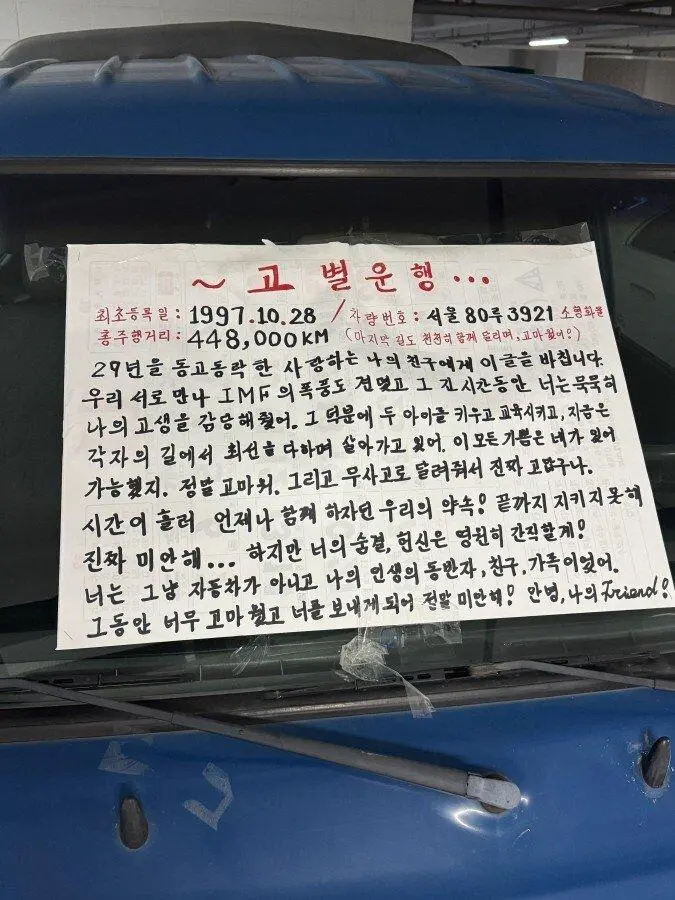 ~ 고 별 운 행 ...
최초등록일 : 1997.10.28 / 차량번호 : 서울 80루 3921 소형화물
총주행거리 : 448,000KM (마지막 길도 천천히 함께 달리며, 고마웠어!)
29년을 동고동락한 사랑하는 나의 친구에게 이글을 바칩니다.
우리 서로 만나 IMF의 폭풍도 견뎠고 그 긴 시간동안 너는 묵묵히
나의 고생을 감당해줬어. 그 덕분에 두 아이를 키우고 교육시키고, 지금은
각자의 길에서 최선을 다하며 살아가고 있어. 이 모든 기쁨은 네가 있어
가능했지. 정말 고마워. 그리고 무사고로 달려줘서 진짜 고맙구나.
시간이 흘러 언제나 함께 하자던 우리의 약속! 끝까지 지키지 못해
진짜 미안해... 하지만 너의 숨결, 헌신은 영원히 간직할게!
너는 그냥 자동차가 아니고 나의 인생의 동반자, 친구, 가족이었어.
그동안 너무 고마웠고 너를 보내게 되어 정말 미안해! 안녕, 나의 Friend!